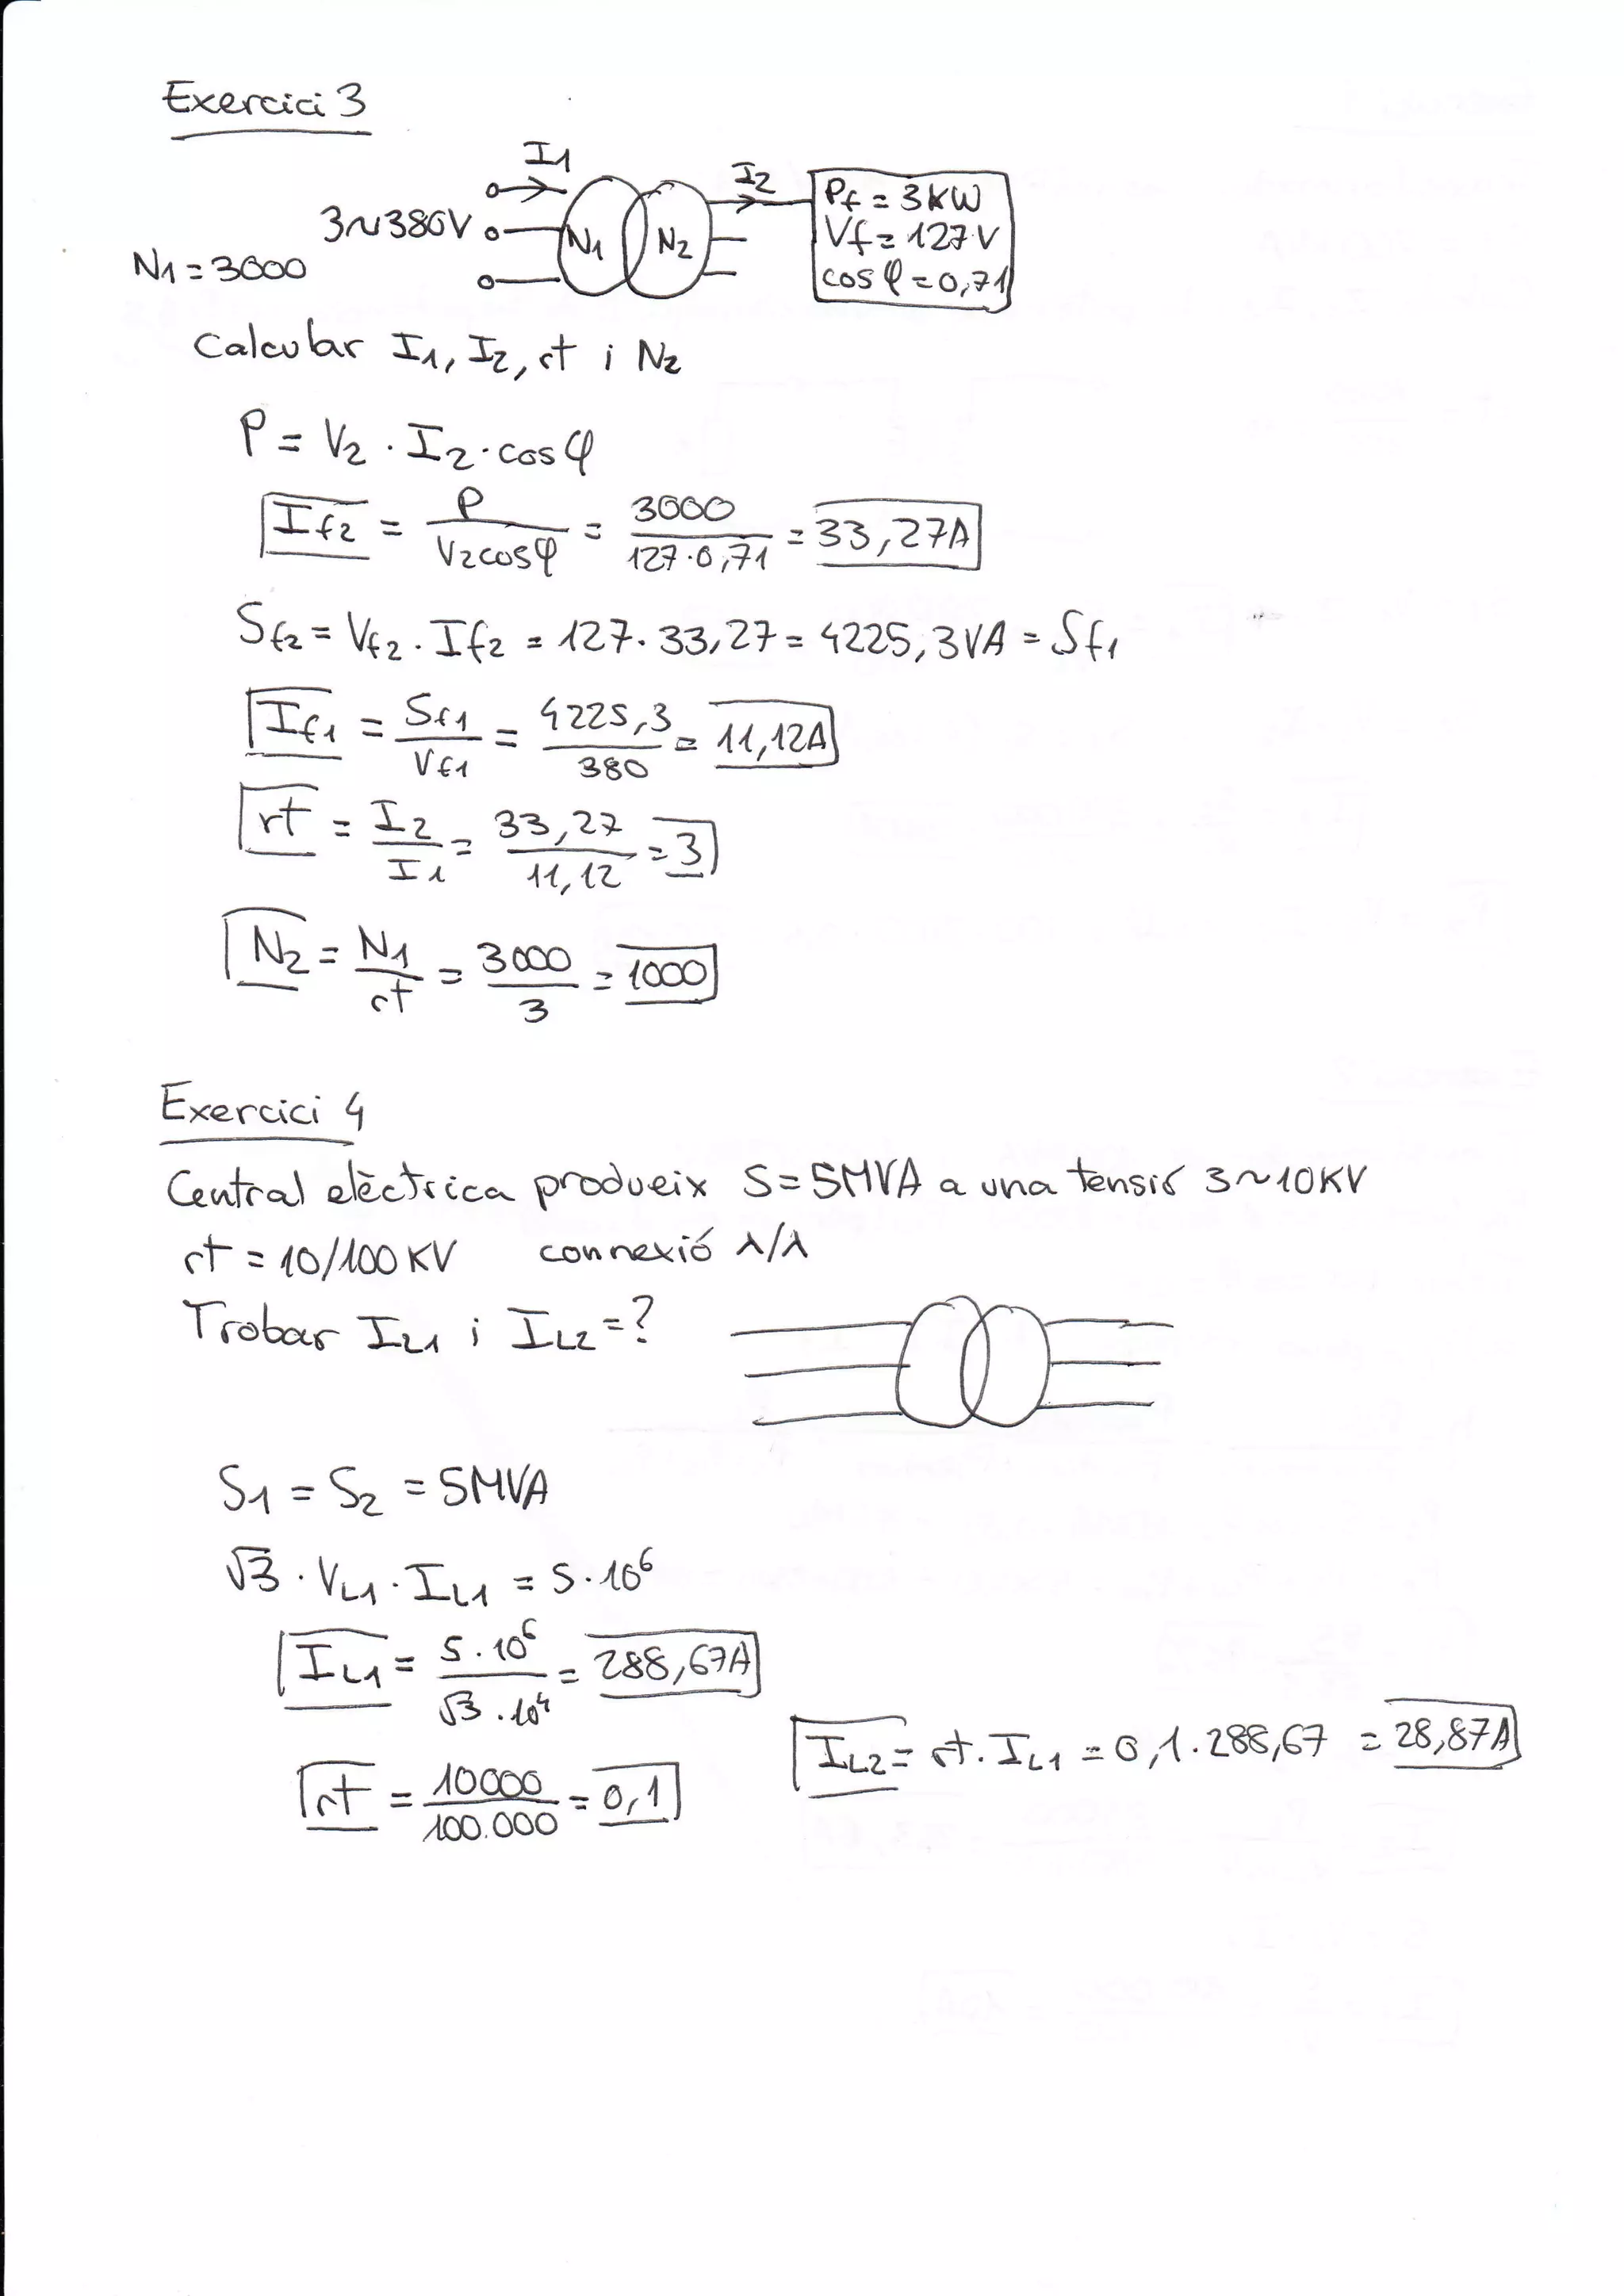 Exercici 3
I1
I2
3~380V
N1 N2
Pf = 3KW
Vf = 127V
cos φ = 0,71
N1 = 3000
Calcular I1, I2, rt i N2
P = V2 · I2 · cos φ
If2 = P / V2cosφ = 3000 / 127·0,71 = 33,27A
Sf2 = Vf2 · If2 = 127 · 33,27 = 4225,3VA = Sf1
If1 = Sf1 / Vf1 = 4225,3 / 380 = 11,12A
rt = I2 / I1 = 33,27 / 11,12 = 3
N2 = N1 / rt = 3000 / 3 = 1000
Exercici 4
Central elèctrica produeix S = 5MVA a una tensió 3~10KV
rt = 10/100 KV connexió ⅄/⅄
Trobar IL1 i IL2 = ?
S1 = S2 = 5MVA
√3 · VL1 · IL1 = 5·10⁶
IL1 = 5·10⁶ / √3·10⁴ = 288,67A
IL2 = rt · IL1 = 0,1 · 288,67 = 28,87A
rt = 10000 / 100.000 = 0,1